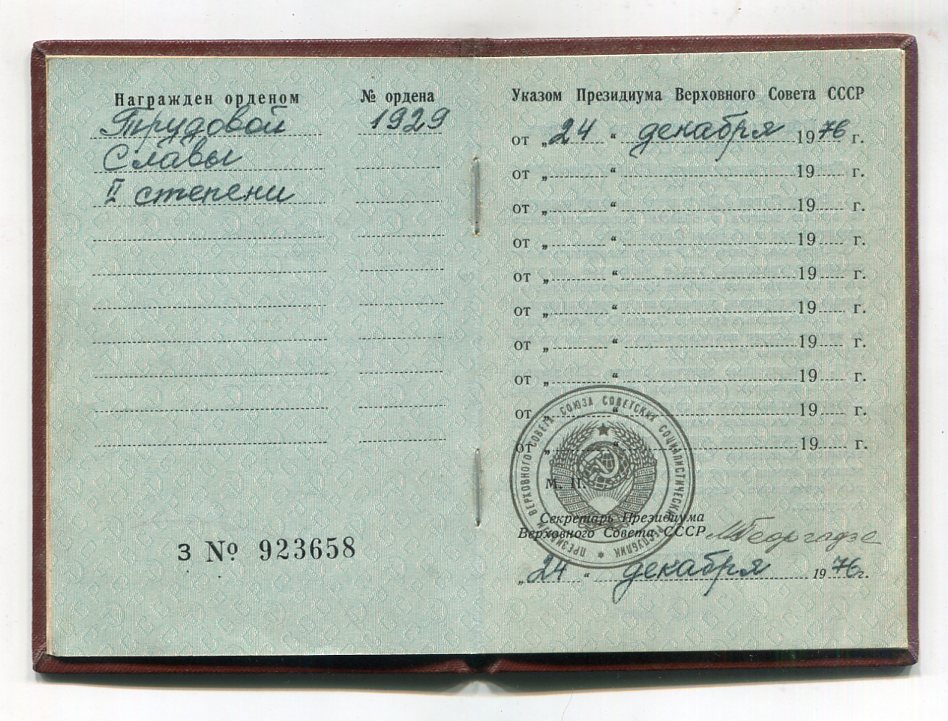 Награжден орденом
№ ордена
Трудовой
1929
Славы
II степени
З № 923658
Указом Президиума Верховного Совета СССР
от „ 24 “ декабря 1976 г.
от „ “ 19 г.
от „ “ 19 г.
от „ “ 19 г.
от „ “ 19 г.
от „ “ 19 г.
от „ “ 19 г.
от „ “ 19 г.
от „ “ 19 г.
от „ “ 19 г.
ПРЕЗИДИУМ ВЕРХОВНОГО СОВЕТА СОЮЗА СОВЕТСКИХ СОЦИАЛИСТИЧЕСКИХ РЕСПУБЛИК
М. П.
Секретарь Президиума
Верховного Совета СССР
МГеоргадзе
„ 24 “ декабря 1976 г.